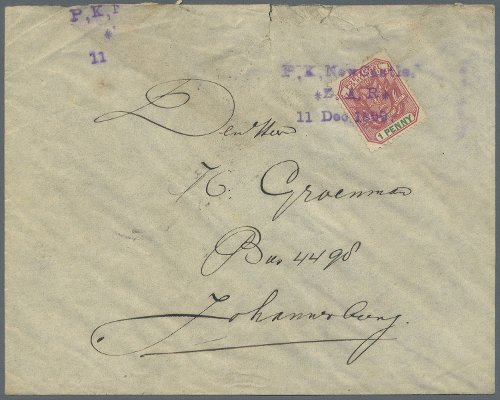 P.K.
11
P.K. Newcastle.
*Z.A.R*
11 Dec 1899
1 PENNY
Den Heer
K. Groenman
Box 4498
Johannesburg.